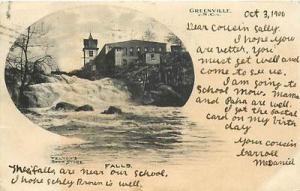 GREENVILLE,
S.C.
Oct 3, 1906
Dear cousin Sally.
I hope you
are better. You
must get well and
come to see us.
I am going to
School now. Mama
and Papa are well.
I got the postal
card on my birth
day
Your cousin
Carroll
McDaniel
FALLS.
The falls are near our school,
I hope Sehly Brown is well.